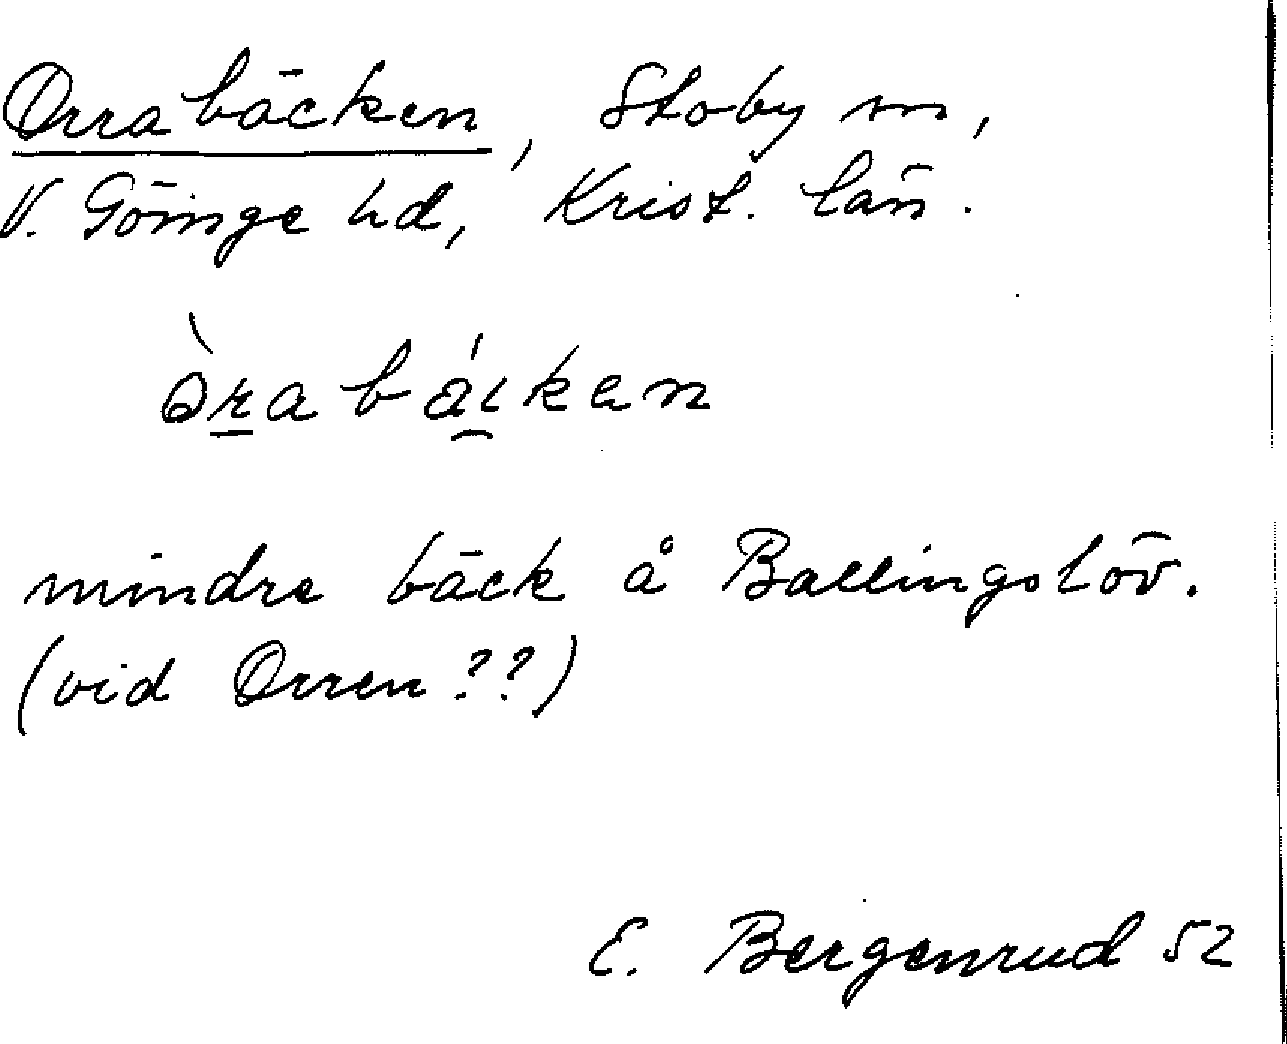 Orrabäcken, Stoby sn,
V. Göinge hd, Krist. län.
mindre bäck å Ballingslöv.
(vid Orren??)
E. Bergenrud 52